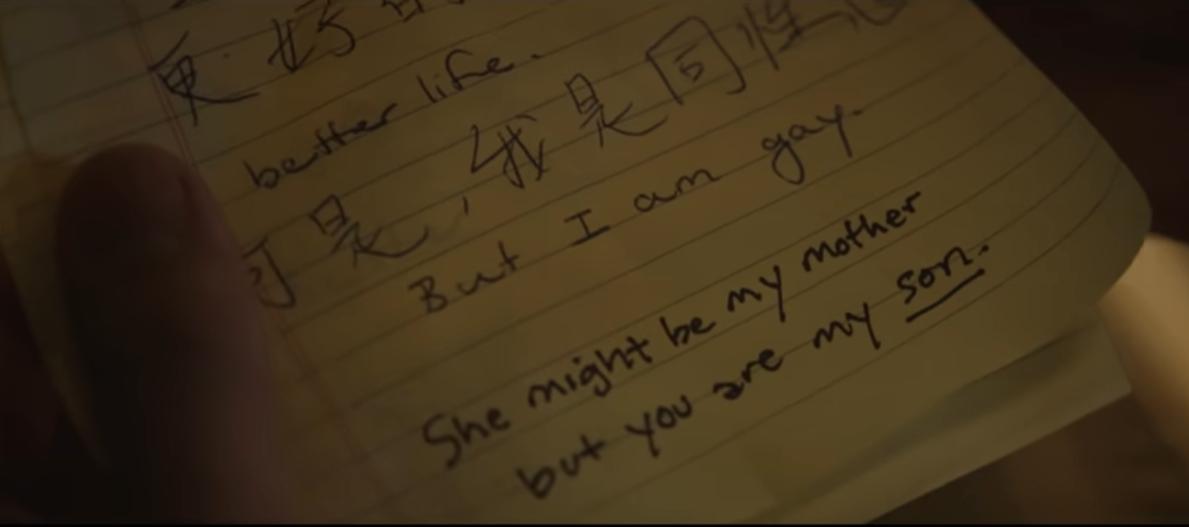 更好的
better life.
可是，我是同性恋
But I am gay.
She might be my mother
but you are my son.